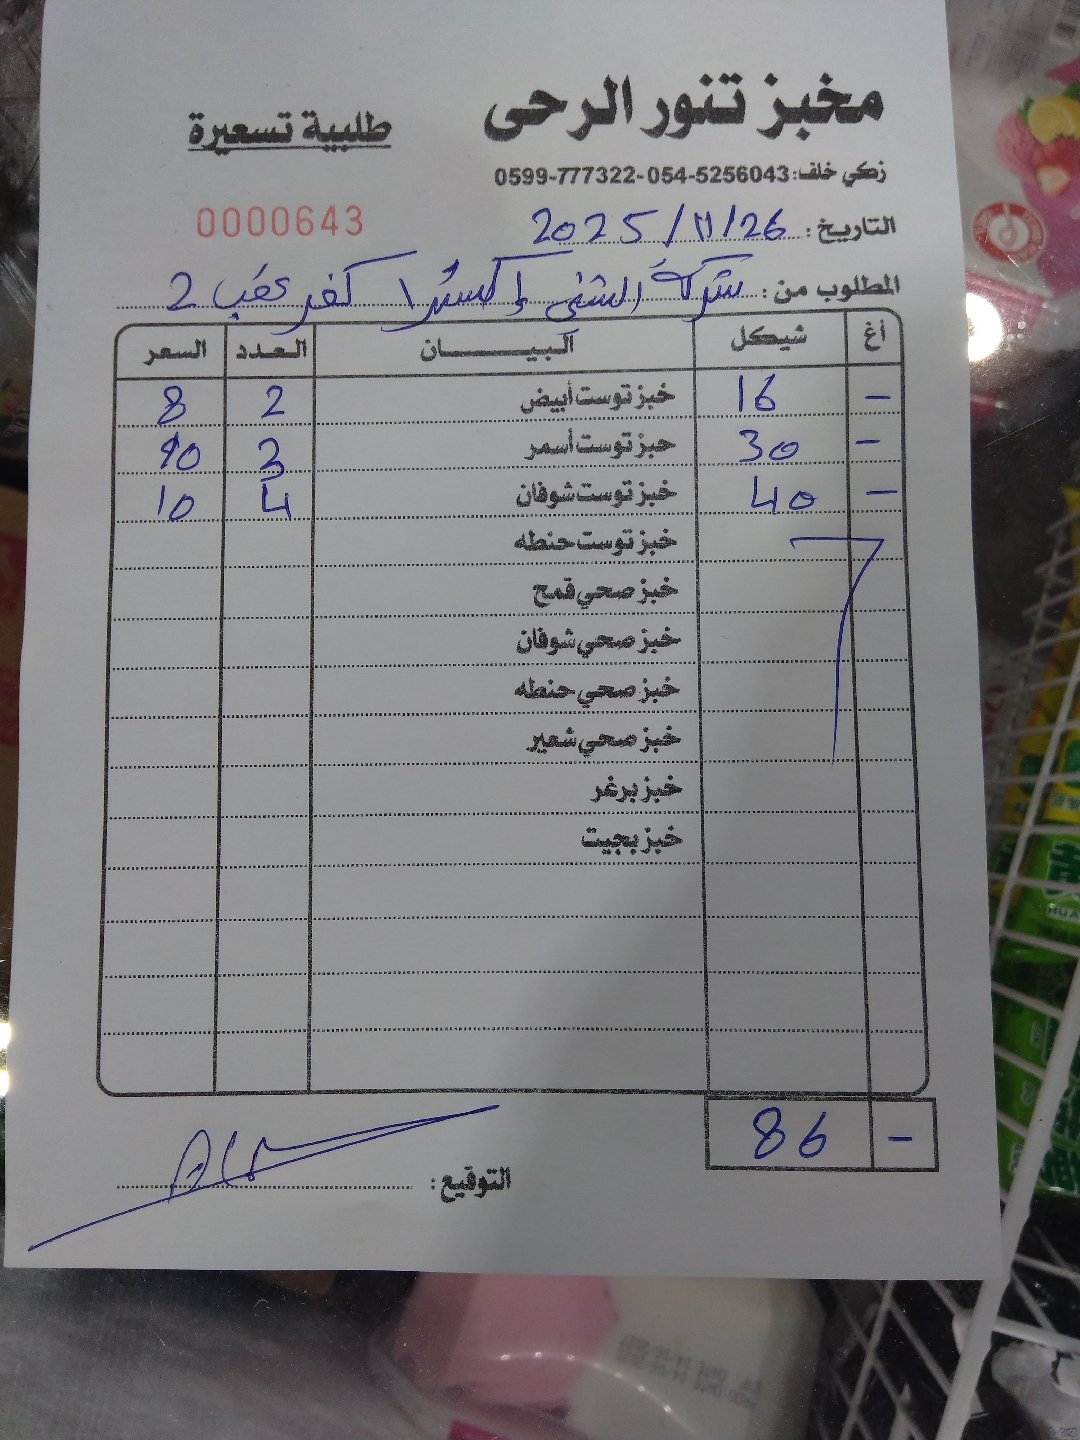 مخبز تنور الرحى
طلبية تسعيرة
زكي خلف: 0599-777322-054-5256043
0000643
التاريخ: 2025/11/26
المطلوب من: شركة الشني إكسترا كفر عقب 2
أغ شيكل البيــــــان العدد السعر
- 16 خبز توست أبيض 2 8
- 30 خبز توست أسمر 3 10
- 40 خبز توست شوفان 4 10
خبز توست حنطه
خبز صحي قمح
خبز صحي شوفان
خبز صحي حنطه
خبز صحي شعير
خبز برغر
خبز بجيت
- 86
التوقيع: